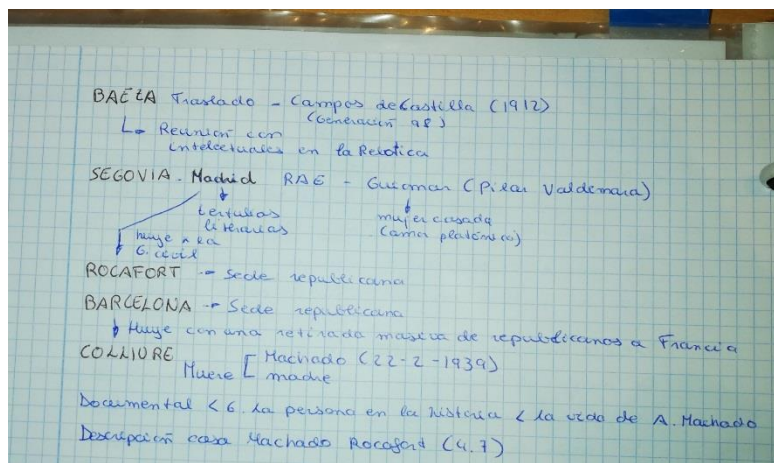 BAEZA Traslado - Campos de Castilla (1912)
(Generación 98)
↳ Reunión con
intelectuales en la Rebotica
SEGOVIA. Madrid RAE - Guiomar (Pilar Valderrama)
tertulias
literarias
mujer casada
(amor platónico)
huye x la
G. civil
ROCAFORT → Sede republicana
BARCELONA → Sede republicana
Huye con una retirada masiva de republicanos a Francia
COLLIURE
Muere [ Machado (22-2-1939)
madre
Documental < 6. La persona en la historia < la vida de A. Machado
Descripción casa Machado Rocafort (4.7)